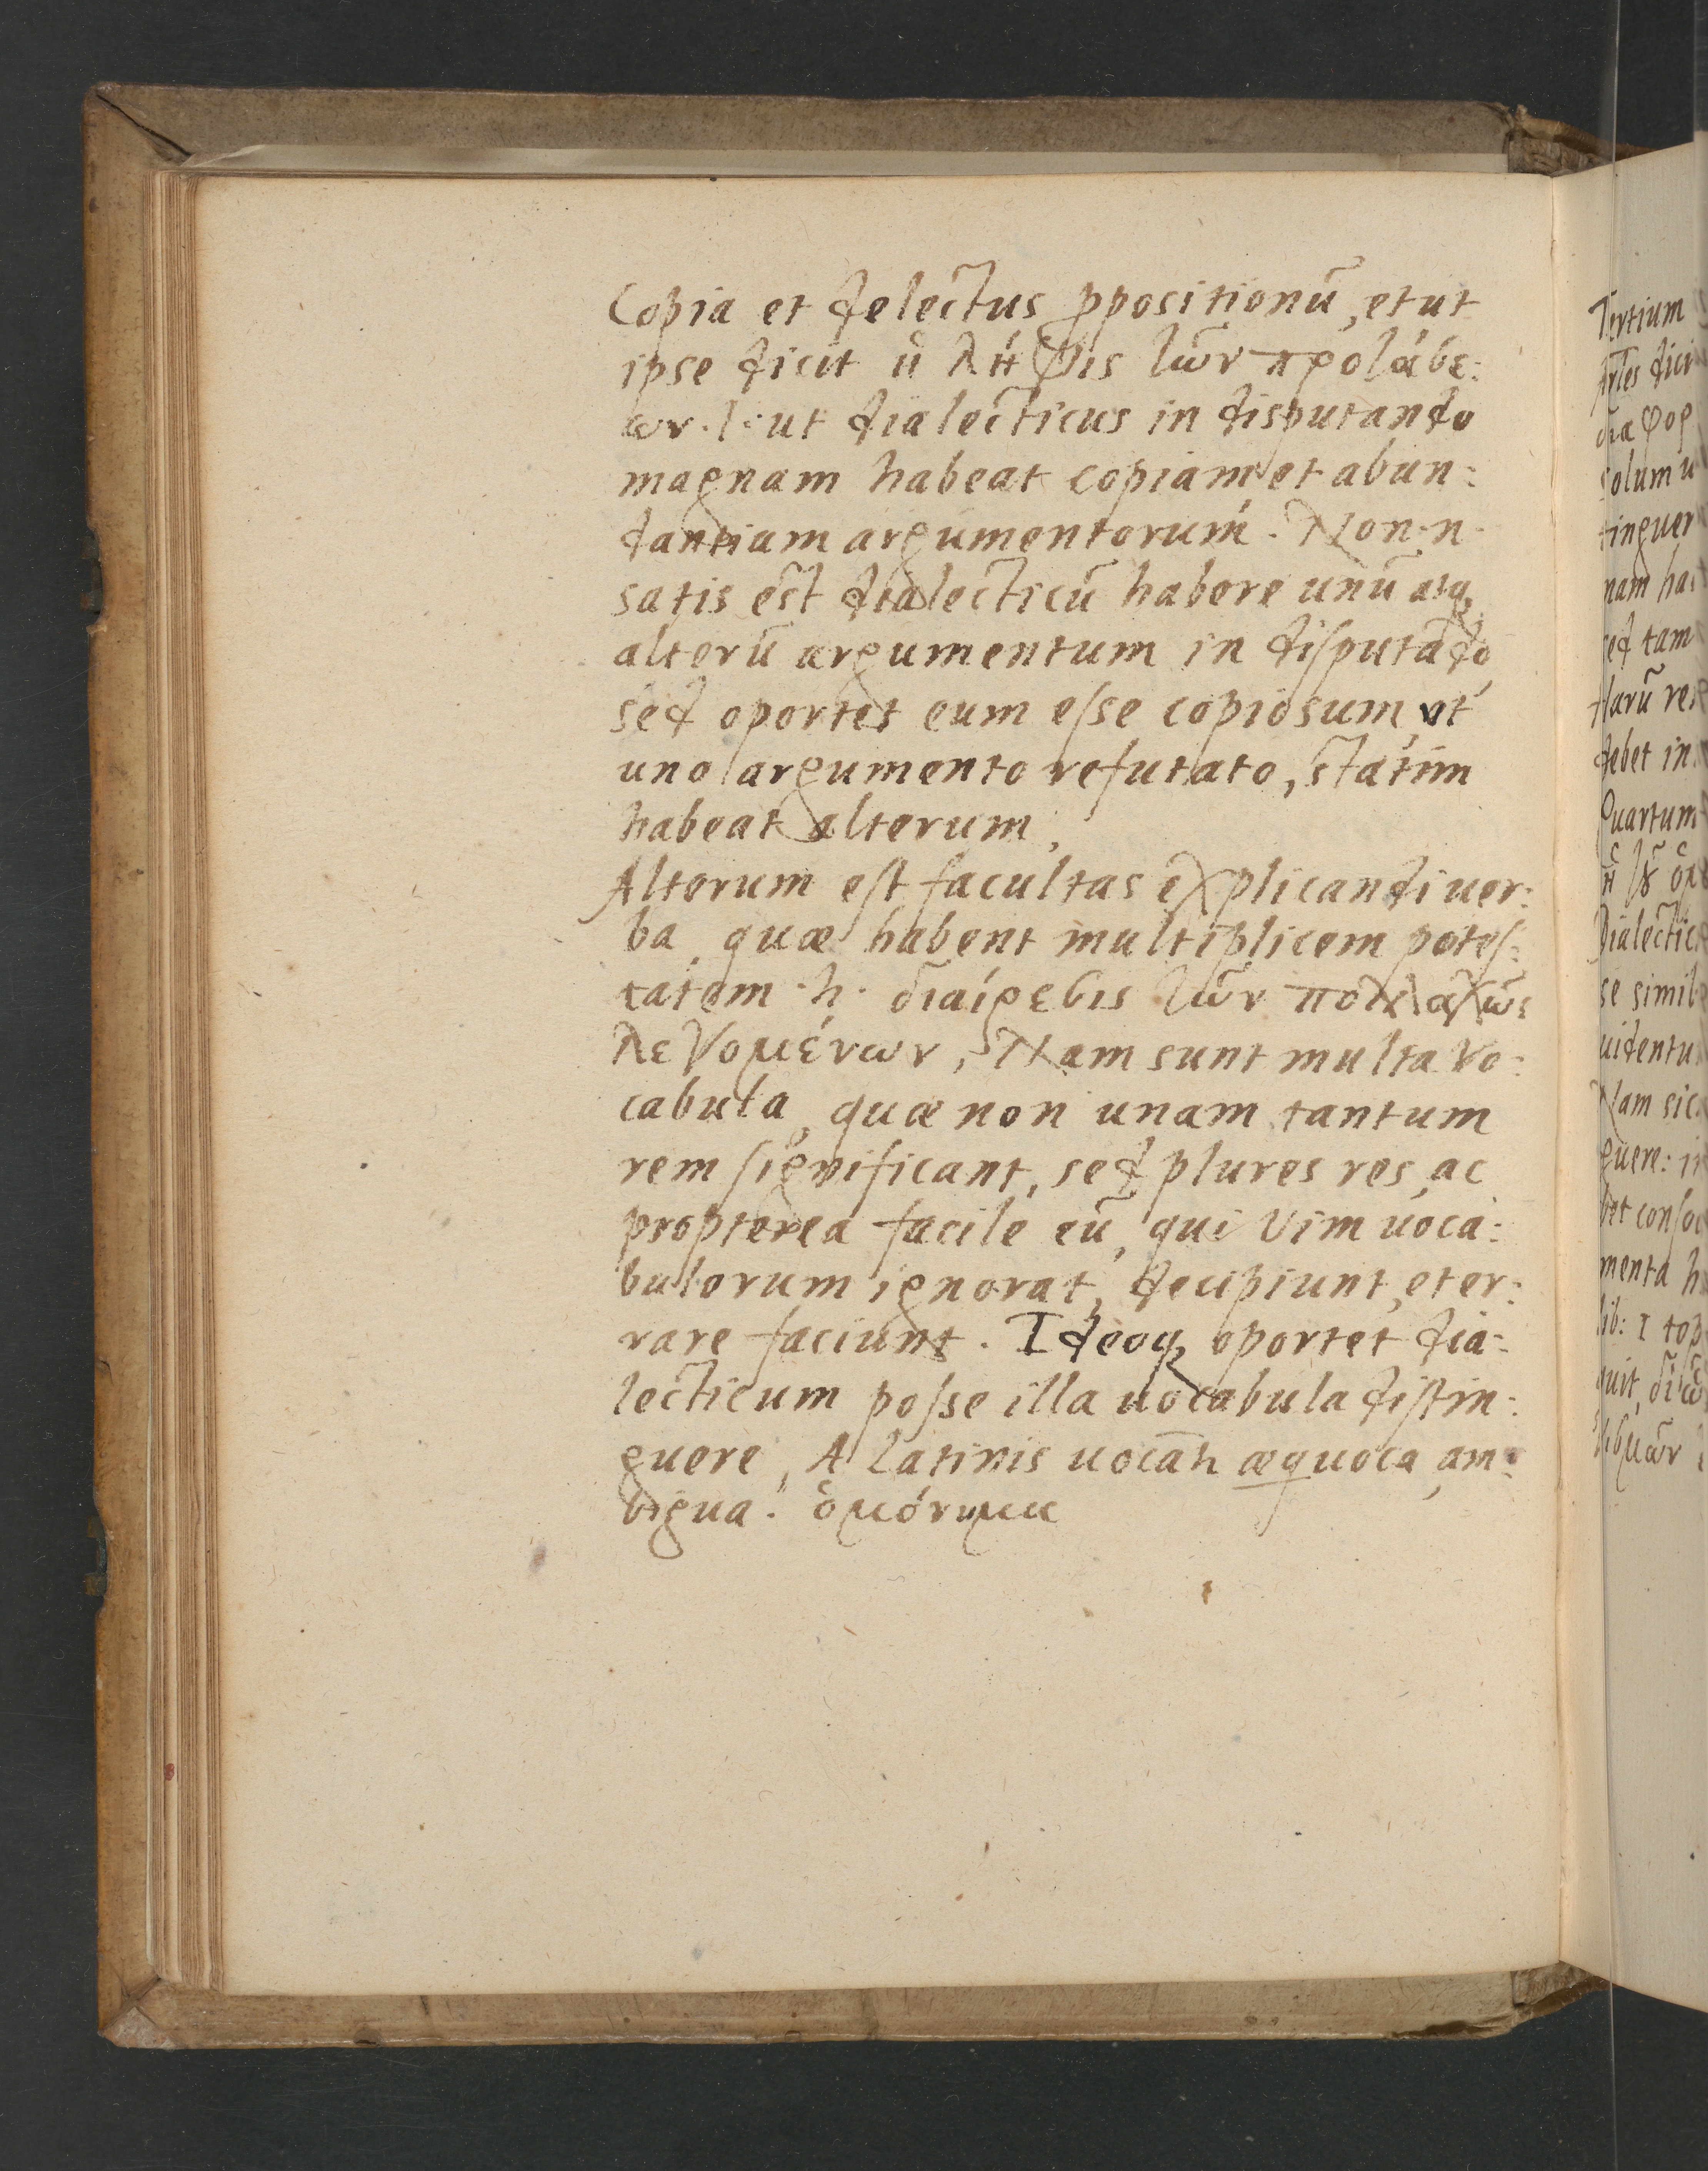 Copia et delectus ꝓpositionũ, et ut
ipse dicit ἡ λῆψις τῶν προτάσε:
ων · i · ut dialecticus in disputando
magnam habeat copiam, et abun:
dantiam argumentorum. Non · n ·
satis est dialecticũ habere unũ atq;
alterũ argumentum in disputãdo,
sed oportet eum esse copiosum, ut
uno argumento refutato, statim
habeat alterum.
Alterum est facultas explicandi uer:
ba, quæ habent multiplicem potes:
tatem · h · διαίρεσις τῶν πολλαχῶς
λεγομένων, Nam sunt multa vo:
cabula, quæ non unam tantum
rem significant, sed plures res, ac
propterea facile eũ, qui vim uoca:
bulorum ignorat, decipiunt, et er:
rare faciunt. Ideoq; oportet dia:
lecticum posse illa uocabula distin:
guere, A Latinis uocãt æquoca, am:
bigua. ὁμόνυμα
Tertium
dici
διαφορ
solum u
tinguer
nam ha
sed tam
debet in
Quartum
Dialectic
se simil
uidentu
Nam sic
guere: i
menta h
lib: I top